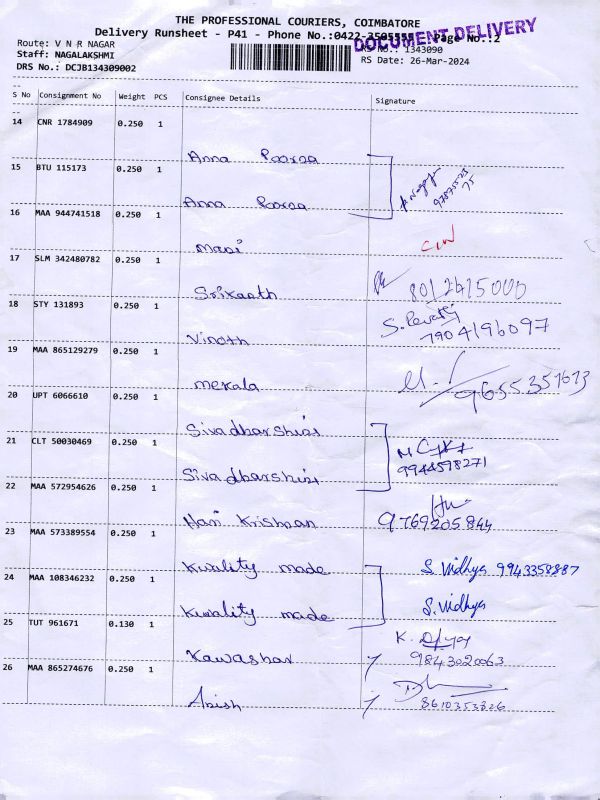 THE PROFESSIONAL COURIERS, COIMBATORE
Delivery Runsheet - P41 - Phone No.:0422- Page No.:2
DOCUMENT DELIVERY
Route: V N R NAGAR
Staff: NAGALAKSHMI
DRS No.: DCJB134309002
1343090
RS Date: 26-Mar-2024
S No Consignment No Weight PCS Consignee Details Signature
14 CNR 1784909 0.250 1
Anna Poorna
15 BTU 115173 0.250 1
Anna Poorna
16 MAA 944741518 0.250 1
mani
17 SLM 342480782 0.250 1
Srikanth 8012415000
18 STY 131893 0.250 1
Vinoth S. Revathy 7904196097
19 MAA 865129279 0.250 1
mekala 9655351673
20 UPT 6066610 0.250 1
Sivadharshini
21 CLT 50030469 0.250 1
9944598271
Sivadharshini
22 MAA 572954626 0.250 1
Hari Krishnan 9769205844
23 MAA 573389554 0.250 1
Kwality made S. Vidhya 9943358887
24 MAA 108346232 0.250 1
Kwality made S. Vidhya
25 TUT 961671 0.130 1
Kawashar 9843020063
26 MAA 865274676 0.250 1
Anish 8610353826